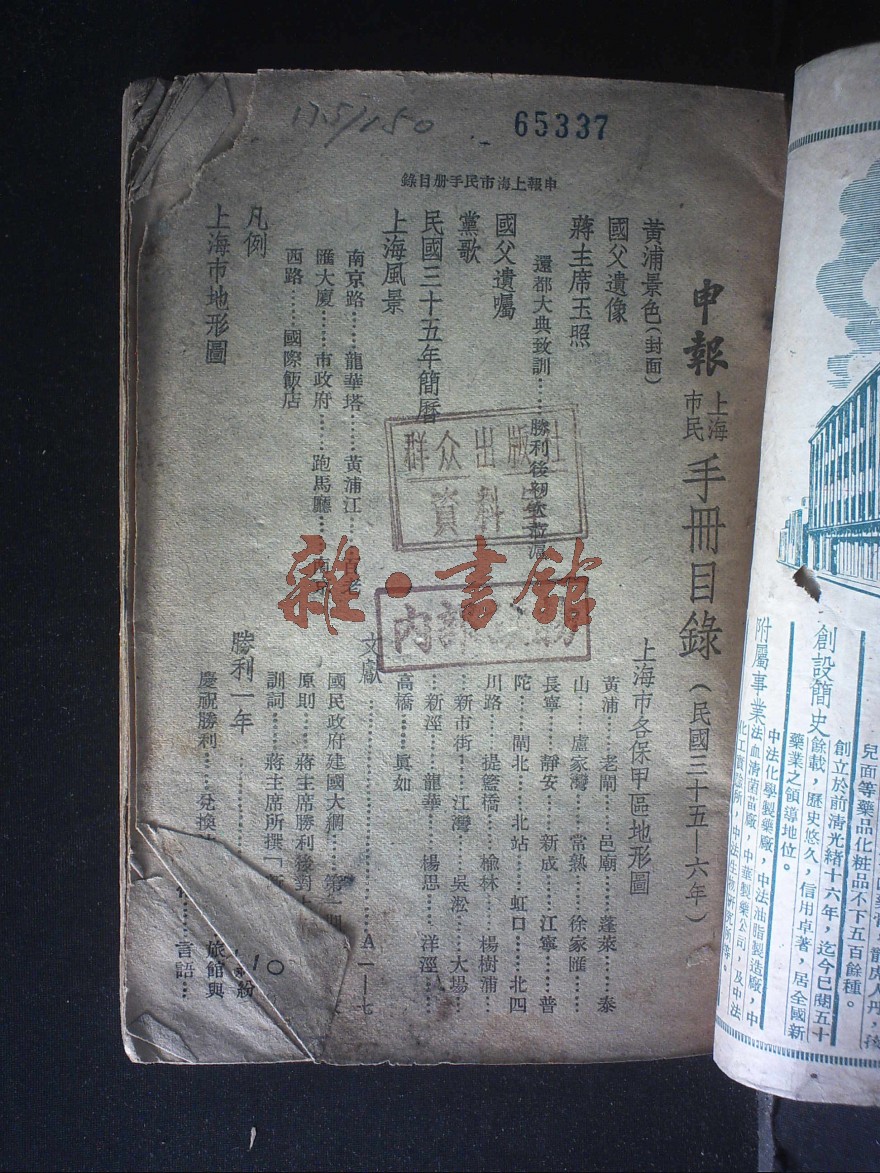 175/150
65337
錄目册手民市海上報申
申報上海市民手冊目錄(民國三十五—六年)
黃浦景色(封面)
國父遺像
蔣主席玉照
還都大典致訓……勝利後初次蒞滬
國父遺囑
黨歌
民國三十五年簡曆
上海風景
南京路……龍華塔……黃浦江……
匯大廈……市政府……跑馬廳……
西路……國際飯店
凡例
上海市地形圖
上海市各保甲區地形圖
黃浦……老閘……邑廟……蓬萊……泰
山……盧家灣……常熟……徐家匯……
長寧……靜安……新成……江寧……普
陀……閘北……北站……虹口……北四
川路……提籃橋……榆林……楊樹浦…
…新市街……江灣……吳淞……大場…
…新涇……龍華……楊思……洋涇…
高橋……眞如
文獻……A一—七
國民政府建國大綱……第
原則……蔣主席勝利後對
訓詞……蔣主席所撰「
勝利一年……
慶祝勝利……兌換
旅館與
紛
言語…
10
群众出版社
資料室
內部
雜·書館
創設簡史
創立於前清光緒十六年,迄今已閱五十
餘載,歷史悠久,信用卓著,居全國新
藥業之領導地位。
附屬事業
中法化學製藥廠,中法油脂製造廠,中
法血清菌苗廠,中華製藥公司,及中法
兒面等藥品化粧品不下五百餘種。
龍虎人丹,